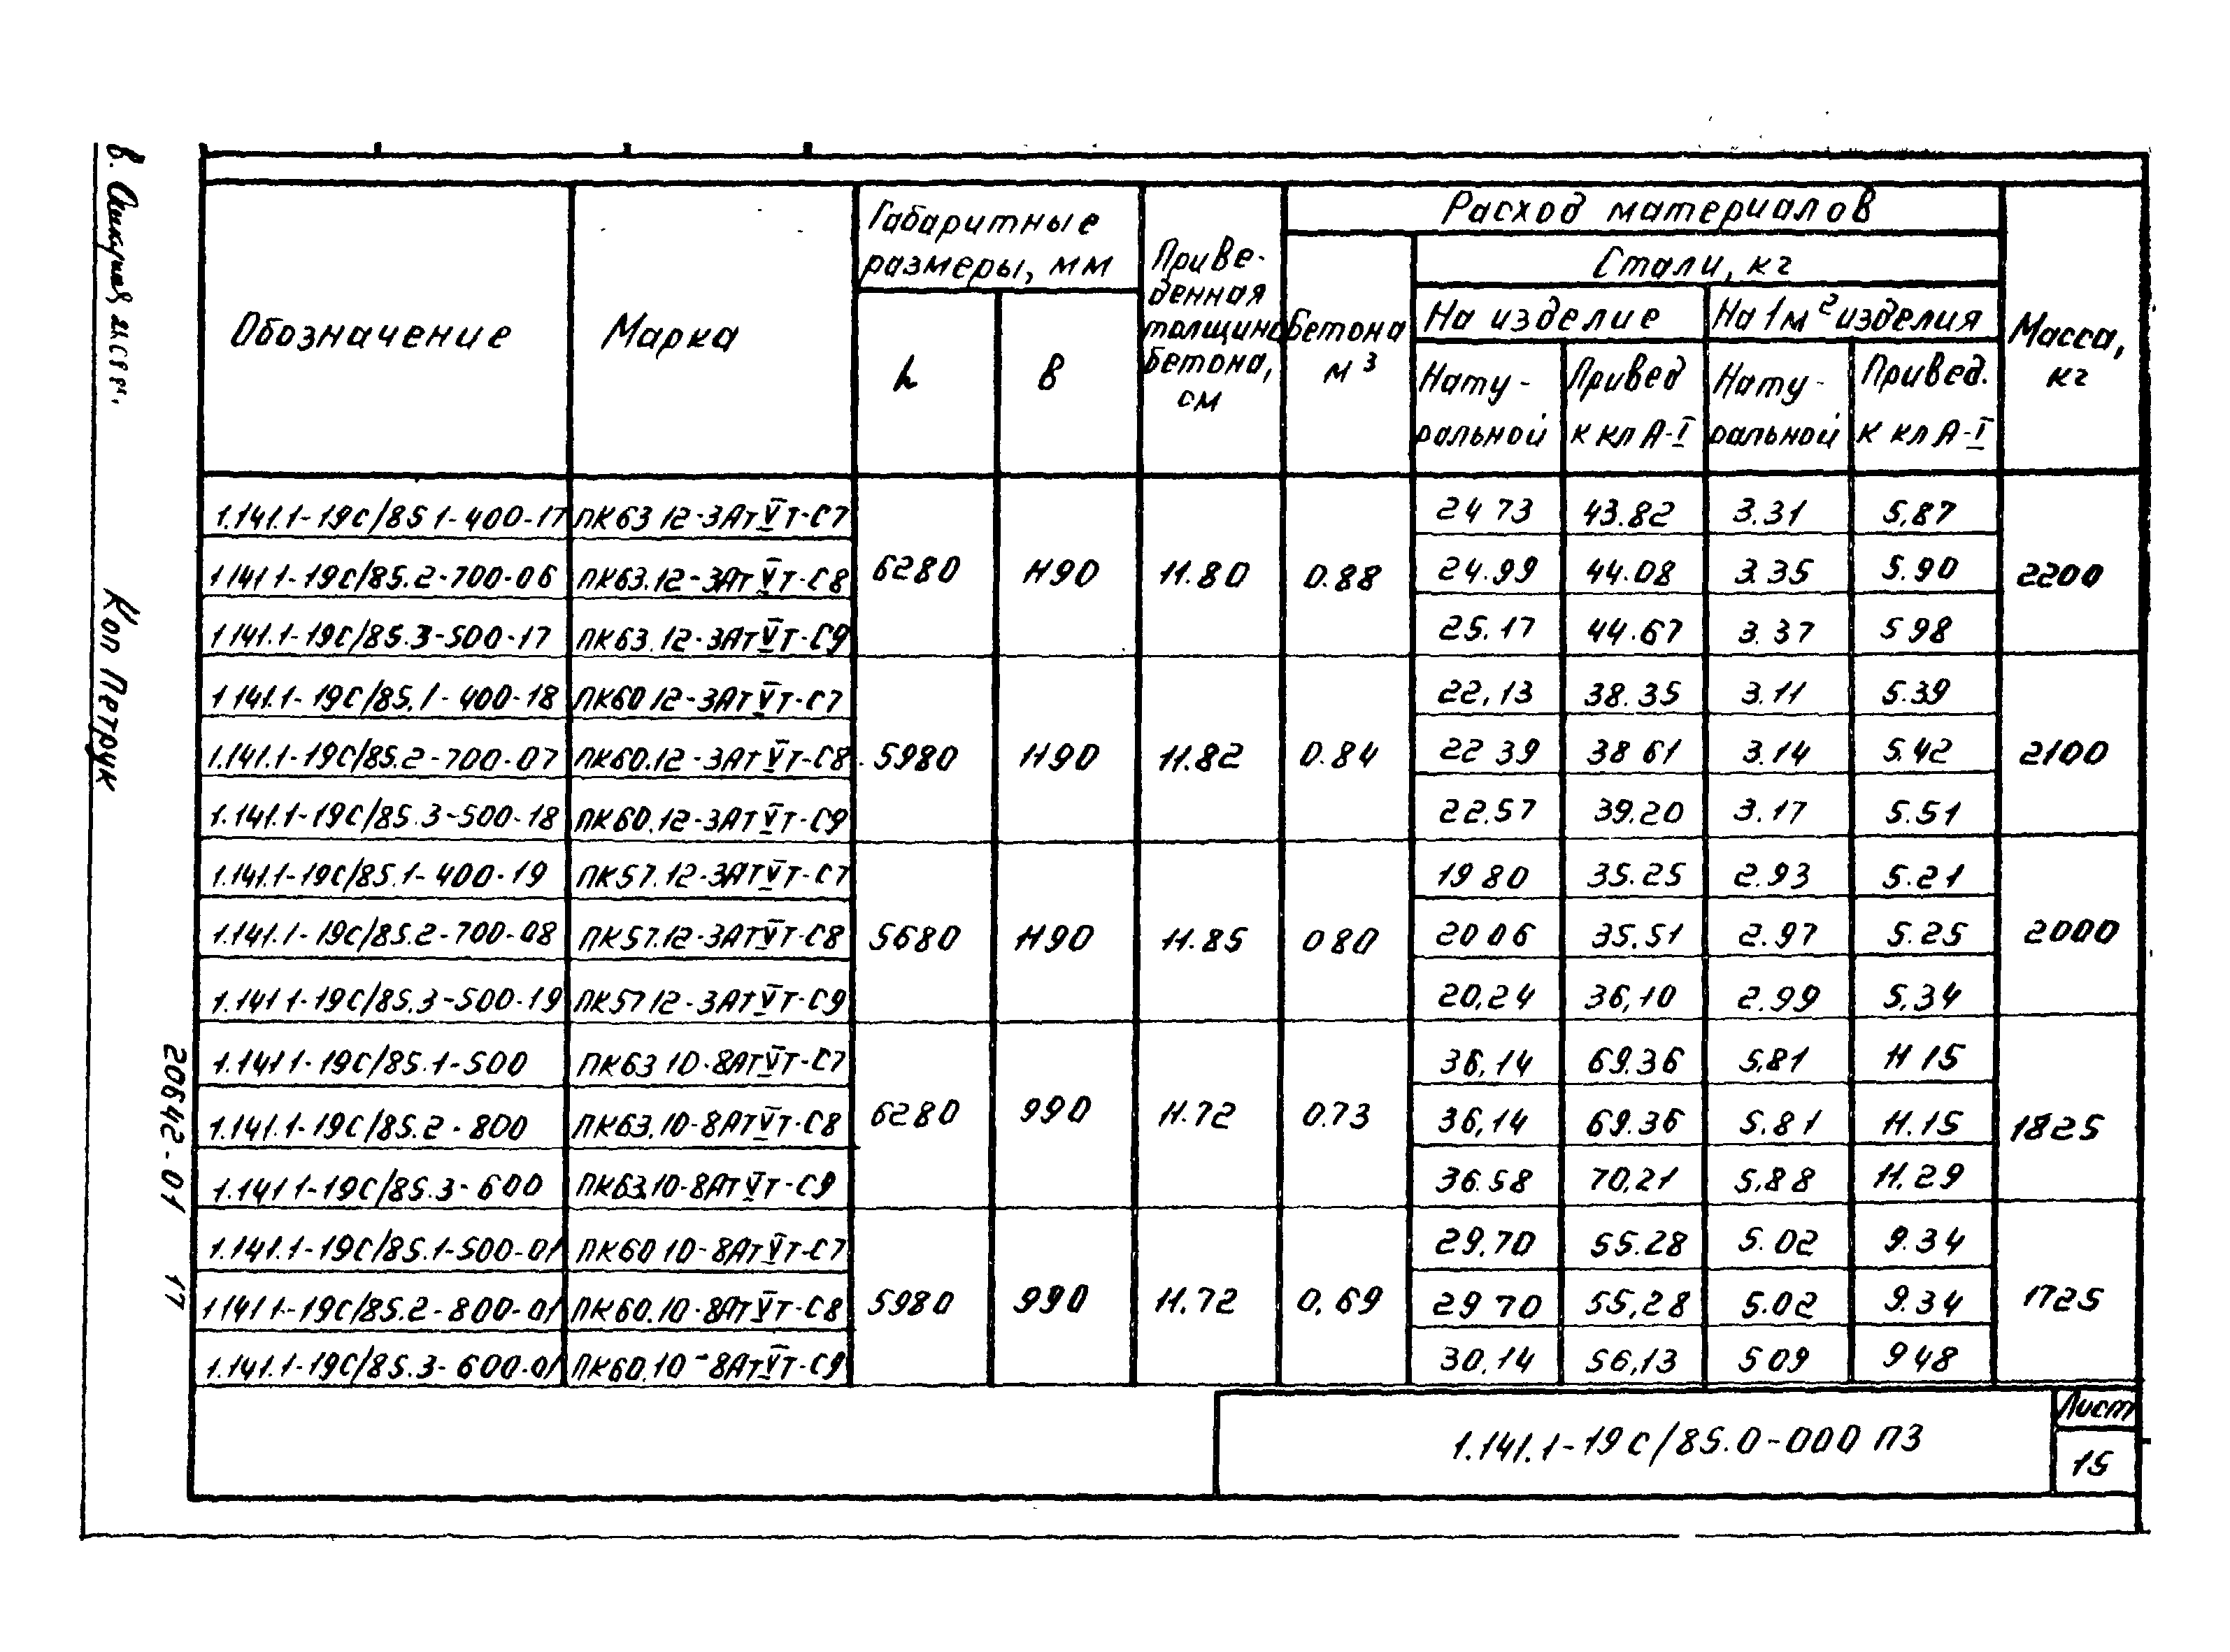 Обозначение Марка Габаритные размеры, мм Приведенная толщина бетона, см Расход материалов Масса, кг
Бетона м³ Стали, кг
На изделие На 1м² изделия
L В Нату-ральной Привед к кл А-I Нату-ральной Привед. к кл А-I
1.141.1-19с/85 1-400-17 ПК63 12-3АтVТ-С7 6280 1190 11.80 0.88 24 73 43.82 3.31 5,87 2200
1 141 1-19с/85.2-700-06 ПК63.12-3АтVТ-С8 24.99 44.08 3.35 5.90
1 141.1-19с/85.3-500-17 ПК63.12-3АтVТ-С9 25.17 44.67 3.37 5 98
1 141.1-19с/85.1-400-18 ПК60 12-3АтVТ-С7 5980 1190 11.82 0.84 22,13 38.35 3.11 5.39 2100
1.141.1-19с/85.2-700-07 ПК60.12-3АтVТ-С8 22 39 38 61 3.14 5.42
1.141.1-19с/85.3-500-18 ПК60.12-3АтVТ-С9 22.57 39.20 3.17 5.51
1.141.1-19с/85.1-400-19 ПК57.12-3АтVТ-С7 5680 1190 11.85 0 80 19 80 35.25 2.93 5.21 2000
1.141.1-19с/85.2-700-08 ПК57.12-3АтVТ-С8 20 06 35.51 2.97 5.25
1.141 1-19с/85.3-500-19 ПК57 12-3АтVТ-С9 20,24 36,10 2.99 5,34
1.141 1-19с/85.1-500 ПК63 10-8АтVТ-С7 6280 990 11.72 0.73 36,14 69.36 5,81 11 15 1825
1.141.1-19с/85.2-800 ПК63.10-8АтVТ-С8 36,14 69.36 5.81 11.15
1.141 1-19с/85.3-600 ПК63.10-8АтVТ-С9 36.58 70,21 5,88 11.29
1.141.1-19с/85.1-500-01 ПК60 10-8АтVТ-С7 5980 990 11.72 0,69 29.70 55.28 5.02 9.34 1725
1 141 1-19с/85.2-800-01 ПК60.10-8АтVТ-С8 29 70 55,28 5.02 9.34
1.141.1-19с/85.3-600-01 ПК60.10-8АтVТ-С9 30,14 56,13 5 09 9 48
1.141.1-19с/85.0-000 ПЗ
Лист
15
Коп Петрук
20642-01 17